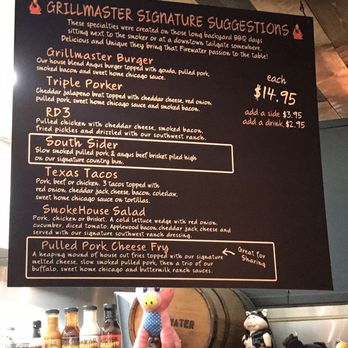 GRILLMASTER SIGNATURE SUGGESTIONS
These specialties were created on those long backyard BBQ days
sitting next to the smoker or at a downtown tailgate somewhere.
Delicious and Unique they bring that Firewater passion to the table!
Grillmaster Burger
Our house blend Angus burger topped with gouda, pulled pork,
smoked bacon and sweet home chicago sauce.
Triple Porker
Cheddar jalapeno brat topped with cheddar cheese, red onion,
pulled pork, sweet home chicago sauce and smoked bacon.
RP3
Pulled chicken with cheddar cheese, smoked bacon,
fried pickles and drizzled with our southwest ranch.
South Sider
Slow smoked pulled pork & angus beef brisket piled high
on our signature country bun.
Texas Tacos
Pork, beef or chicken. 3 tacos topped with
red onion, cheddar jack cheese, bacon, coleslaw,
sweet home chicago sauce on tortillas.
SmokeHouse Salad
Pork, chicken or Brisket. A cold lettuce wedge with red onion,
cucumber, diced tomato, Applewood bacon, cheddar jack cheese and
served with our signature southwest ranch dressing.
Pulled Pork Cheese Fry
A heaping mound of house cut fries topped with our signature
melted cheese, slow smoked pulled pork, then a trio of our
buffalo, sweet home chicago and buttermilk ranch sauces.
Great for
Sharing
each
$14.95
add a side $3.95
add a drink $2.95
WATER